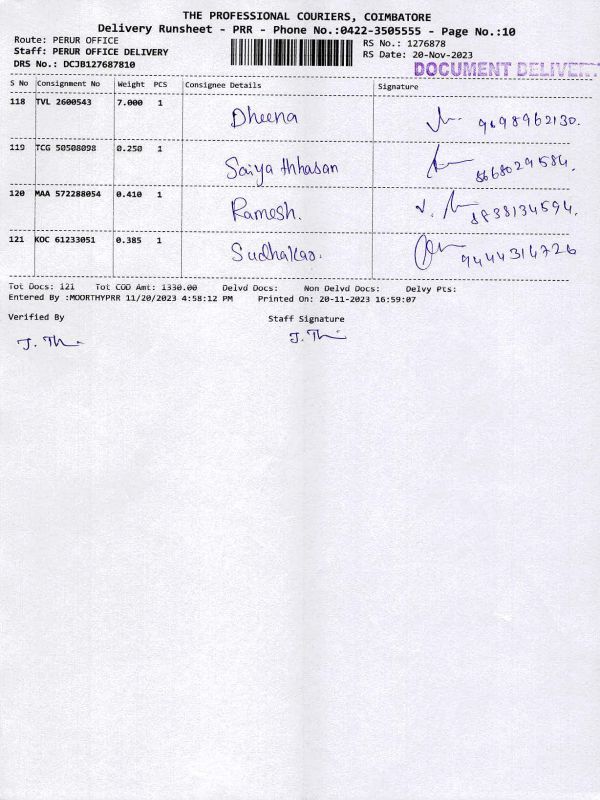 THE PROFESSIONAL COURIERS, COIMBATORE
Delivery Runsheet - PRR - Phone No.:0422-3505555 - Page No.:10
Route: PERUR OFFICE
RS No.: 1276878
Staff: PERUR OFFICE DELIVERY
RS Date: 20-Nov-2023
DRS No.: DCJB127687810
DOCUMENT DELIVER
S No Consignment No Weight PCS Consignee Details Signature
118 TVL 2600543 7.000 1 Dheena 9698962130.
119 TCG 50508098 0.250 1 Saiyathhasan 8668029584.
120 MAA 572288054 0.410 1 Ramesh. 8838134594.
121 KOC 61233051 0.385 1 Sudhakar. 9444314726
Tot Docs: 121 Tot COD Amt: 1330.00 Delvd Docs: Non Delvd Docs: Delvy Pts:
Entered By :MOORTHYPRR 11/20/2023 4:58:12 PM Printed On: 20-11-2023 16:59:07
Verified By Staff Signature